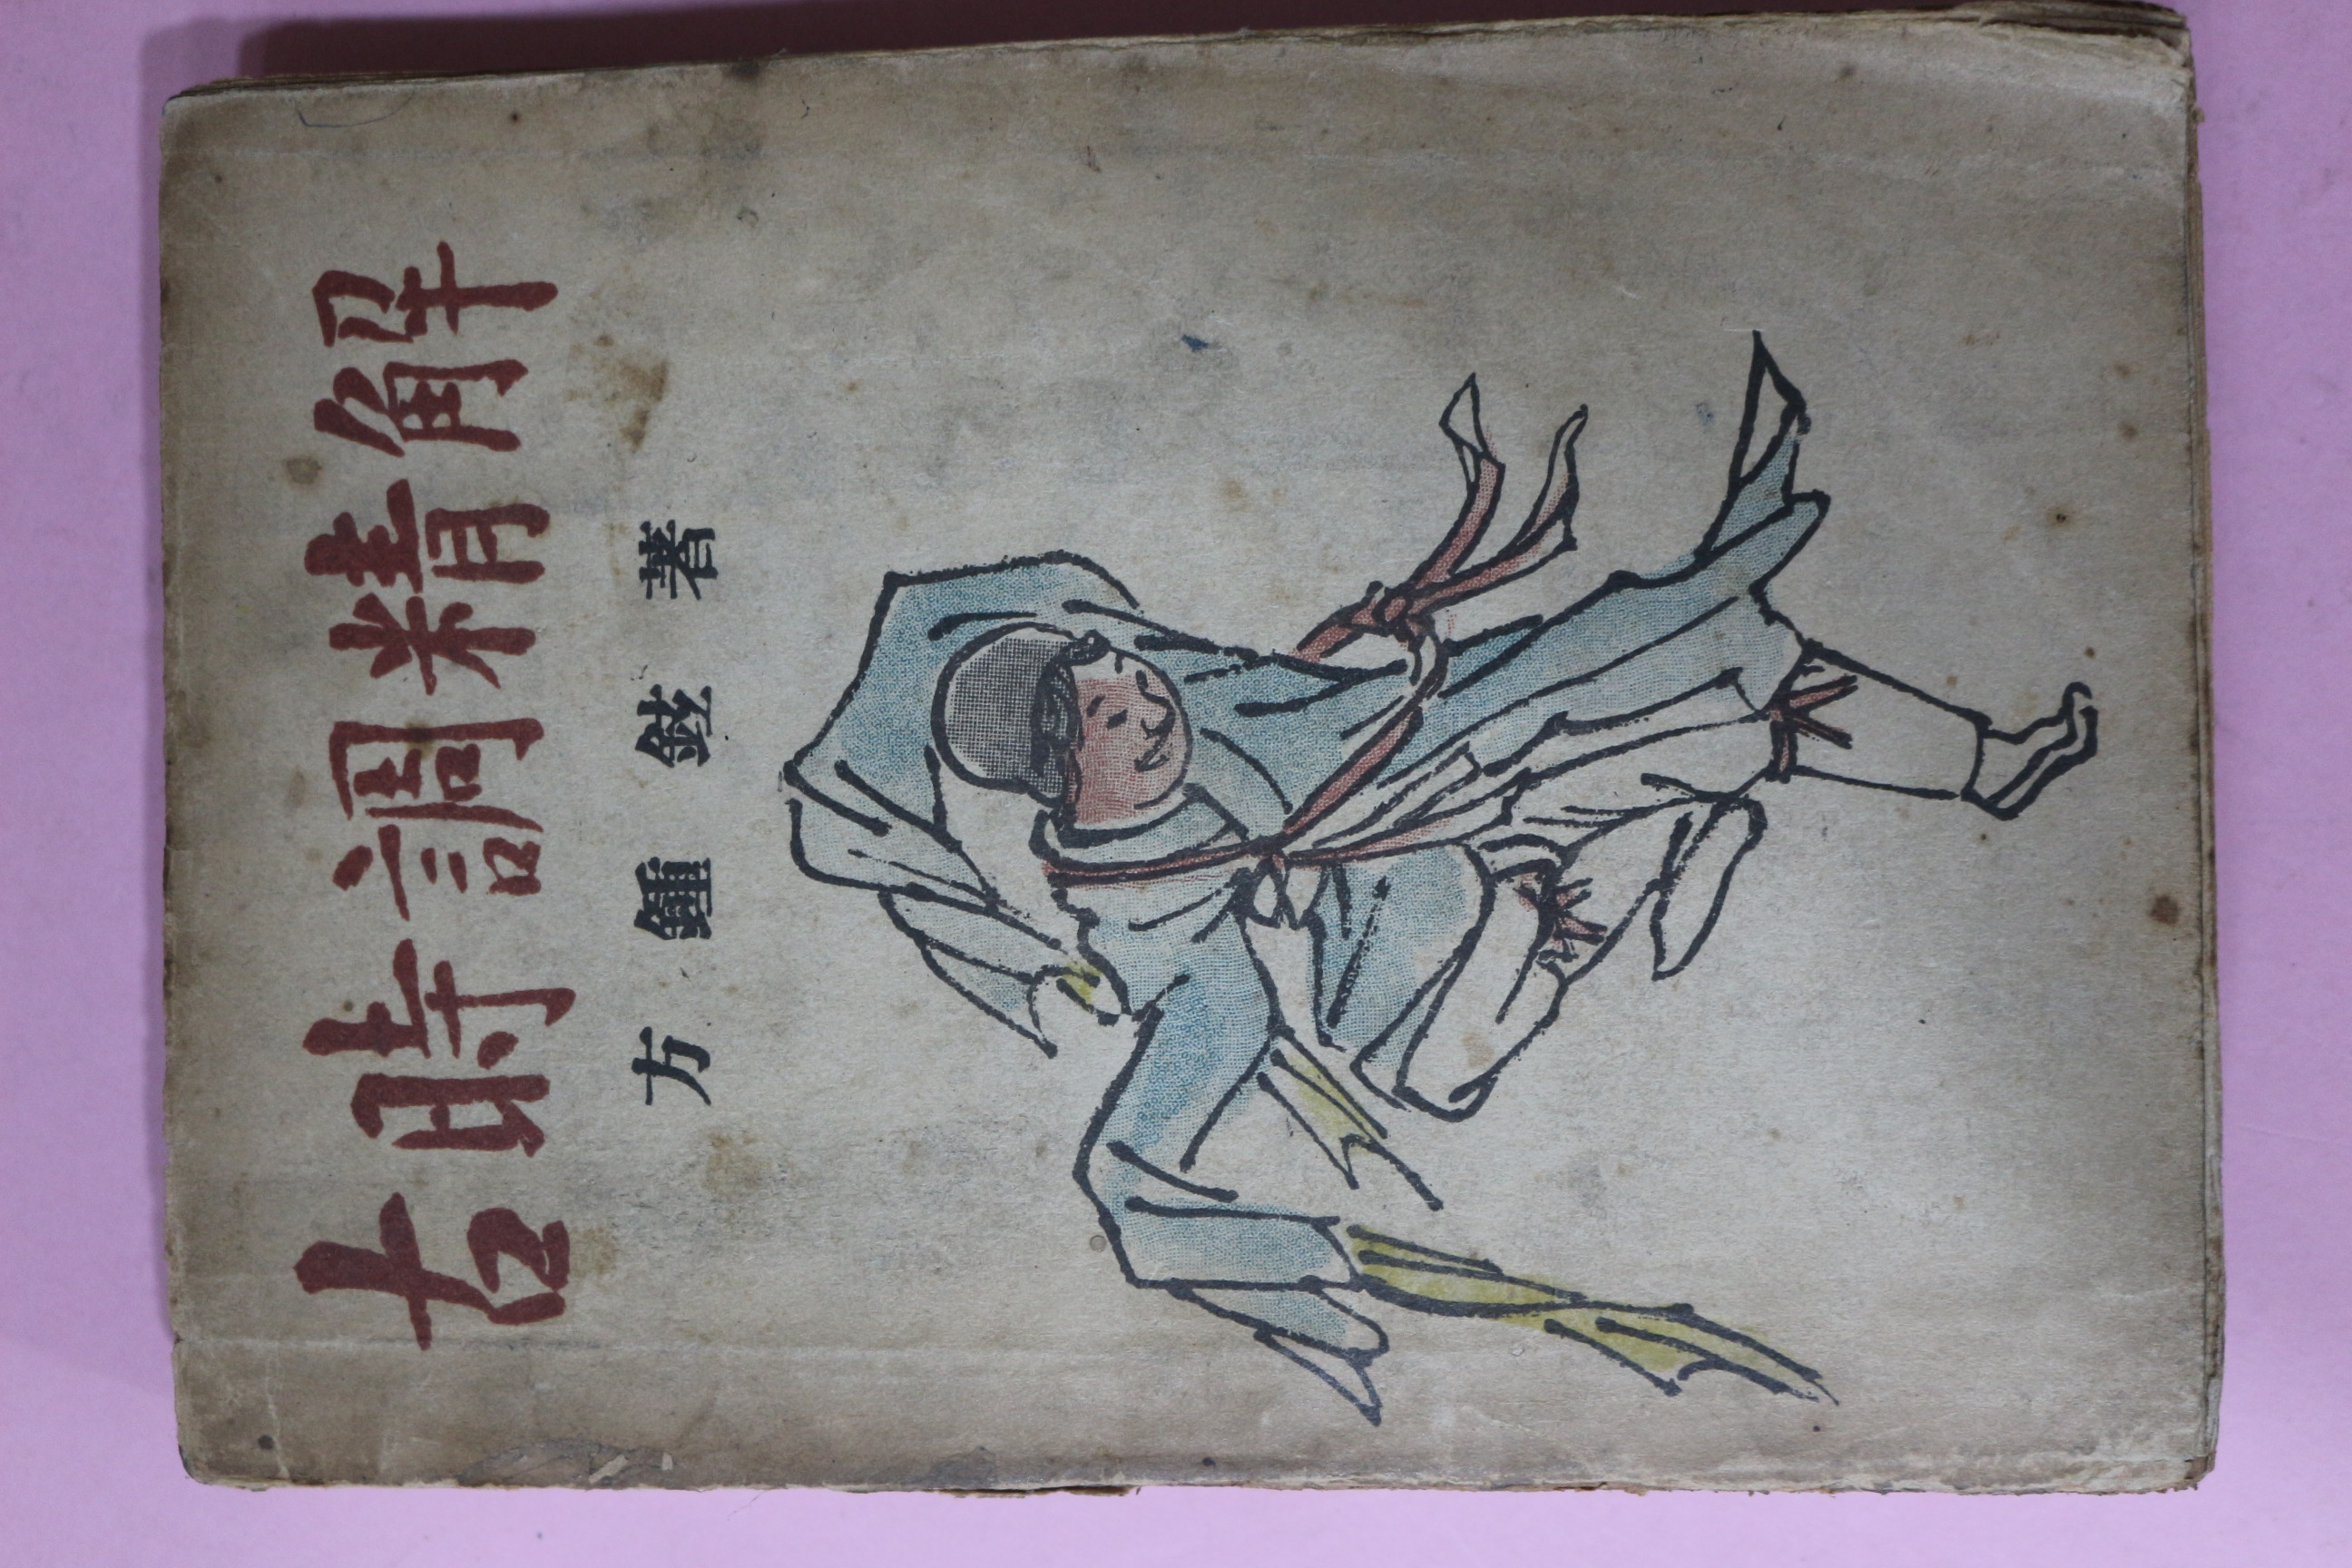 古時調精解
方鍾鉉 著